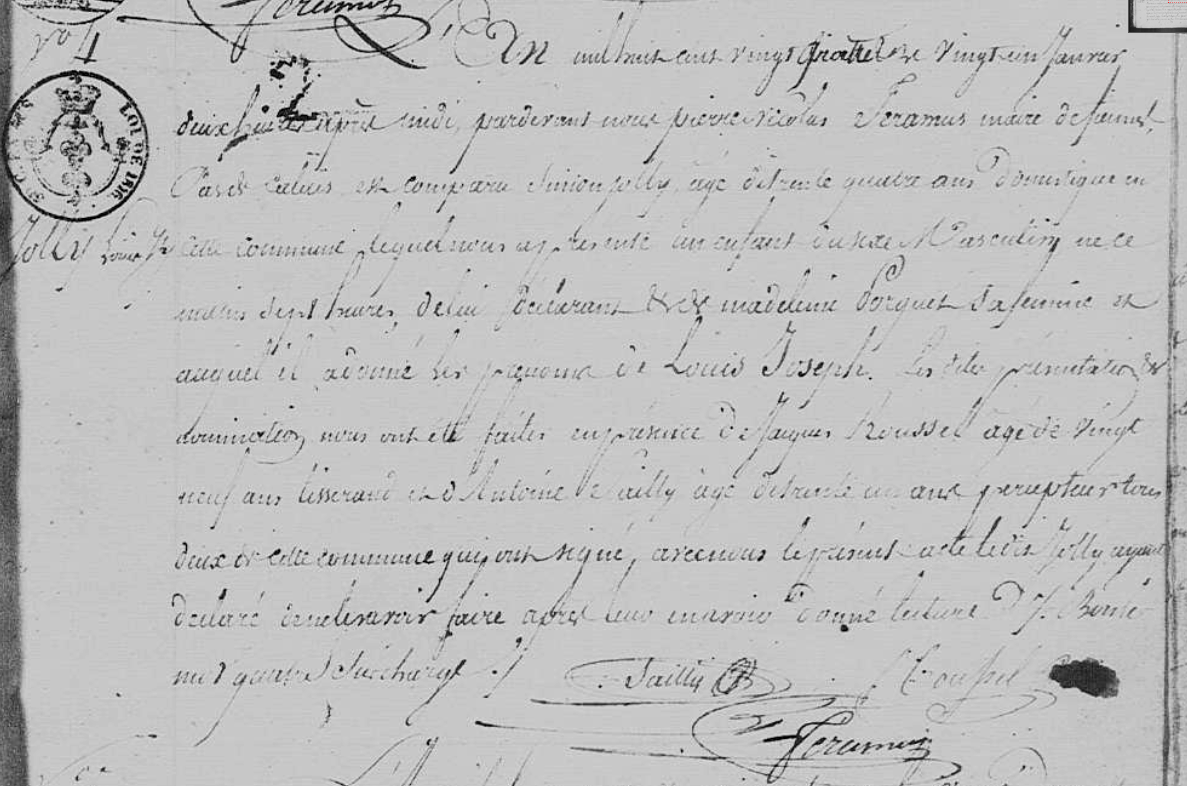 Feramus
No 4
L'An mil huit cent vingt quatre le vingt un Janvier
deux heures après midi, pardevant nous pierre nicolas Feramus maire de
Pas de Calais est comparu Simon Jolly, agé de trente quatre ans domestique en
LOI DE 1816
Jolly Louis Jh
cette commune lequel nous a présenté un enfant du sexe Masculin né ce
matin sept heures, de lui déclarant & de madeleine Porquet sa femme et
auquel il a donné les prenoms de Louis Joseph. Les dites présentation &
nomination nous ont été faites en présence de Jacques Roussel agé de vingt
neuf ans tisserand et d'Antoine Sailly agé de trente un ans percepteur tous
deux de cette commune qui ont signé, avec nous le présent acte le dit Jolly ayant
déclaré de ne le savoir faire après leur en avoir donné lecture
mot quatre Surchargé ./.
Sailly Roussel
Feramus